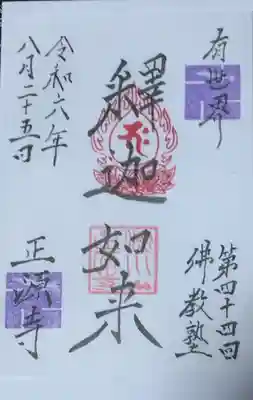 有世界
第四十四回
佛教塾
釋迦如来
令和六年
八月二十五日
正源寺